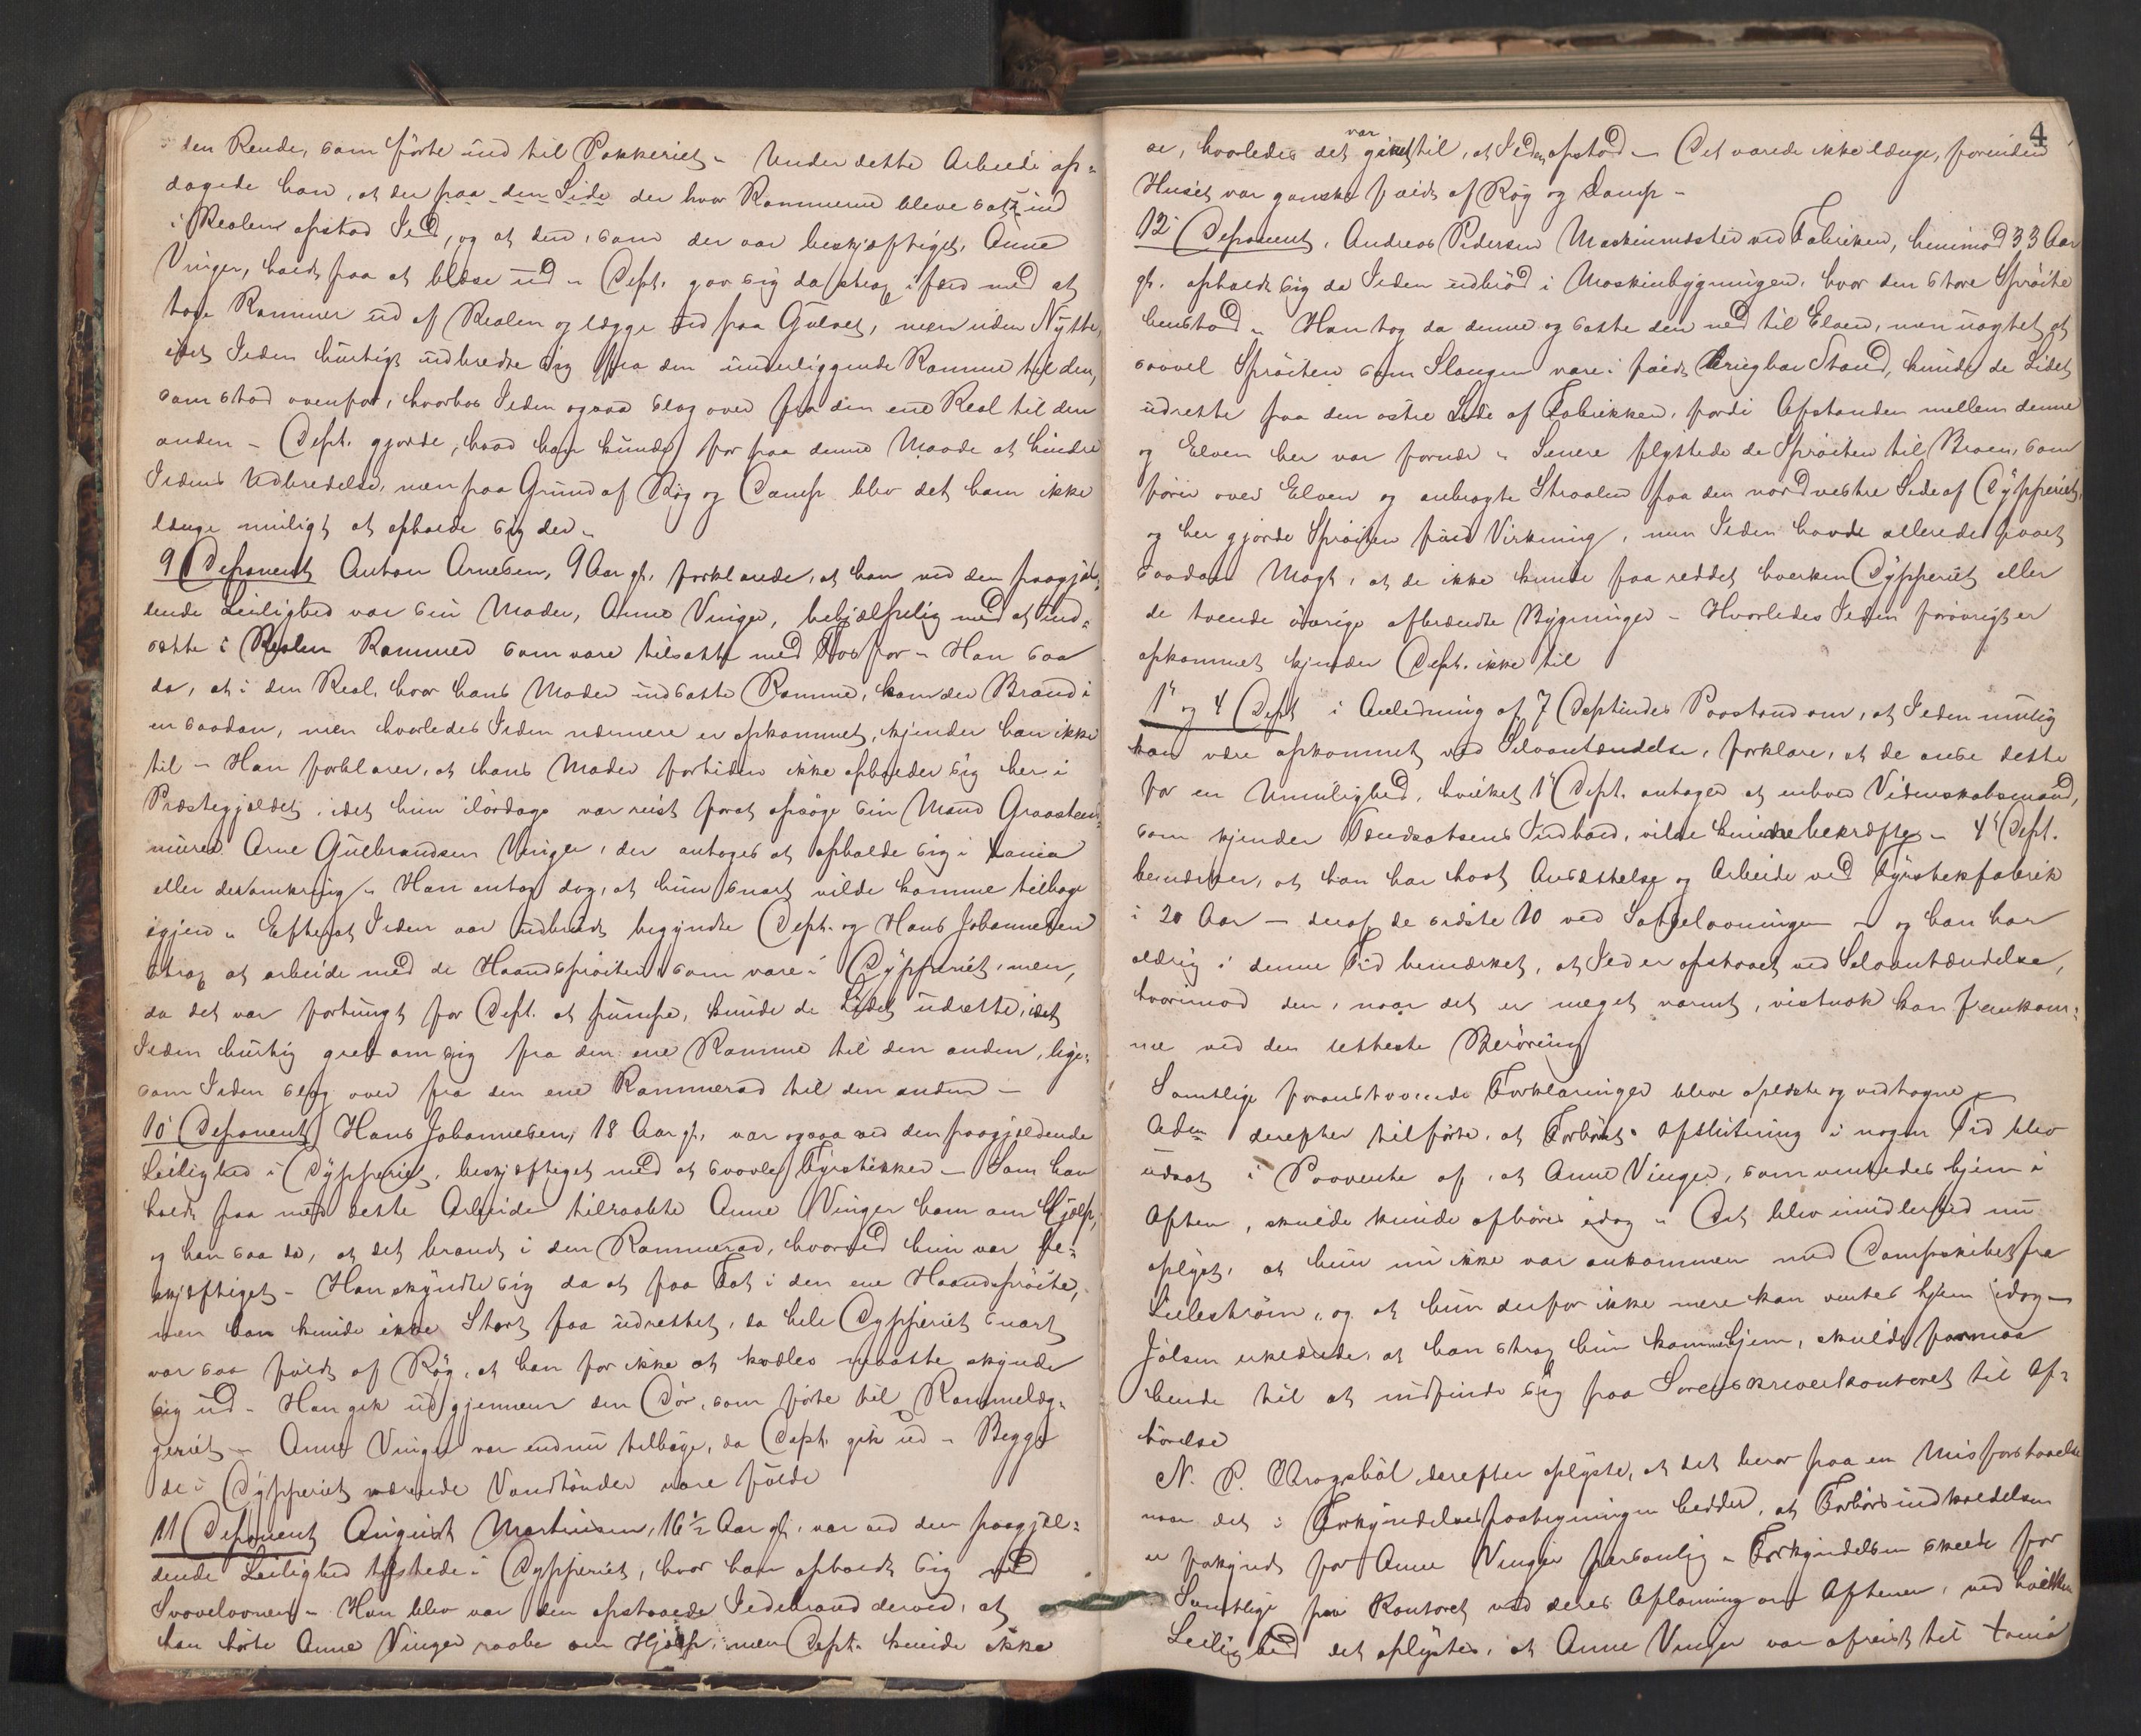 den Rende, som förte ind til Pakkeriet - Under dette Arbeide op=
dagede han, at der paa den Side der hvor Rammerne bleve satte ind
i Realen opstod Ild, og at den, som der var beskjæftiget, Anne
Vinger, holdt paa at blæse ud - Dept. gav sig da strax ifærd med at
tage Rammer ud af Realen og lægge ned paa Gulvet, men uden Nytte,
idet Ilden hurtigt udbredte sig fra den underliggende Ramme til den,
som stod ovenfor, hvorhos Ilden ogsaa slog over fra den ene Real til den
anden - Dept. gjorde, hvad han kunde for paa denne Maade at hindre
Ildens Udbredelse, men paa Grund af Røg og Damp blev det ham ikke
længe muligt at opholde sig der -
9 Deponent Anton Arnesen, 9 Aar gl. forklarede, at han ved den paagjæl=
dende Leilighed var sin Moder, Anne Vinger, behjælpelig med at ind=
sætte i Realen Rammer som vare tilsatte med Fosfor - Han saa
da, at i den Real, hvor hans Moder indsatte Ramme, kom der Brand i
en saadan, men hvorledes Ilden nærmere er opkommet, kjender han ikke
til - Han forklarer, at hans Moder fortiden ikke opholder sig her i
Præstegjældet, idet hun ilørdags var reist forat opsøge sin Mand Graasten=
murer Arne Gulbrandsen Vinger, der antages at opholde sig i Vania
eller deromkring - Han antog dog, at hun snart vilde komme tilbage
igjen - Efterat Ilden var udbrudt begyndte Dept. og Hans Johannesen
strax at arbeide med de Haandsprøiter som vare i Dypperiet, men,
da det var fortungt for Dept. at pumpe, kunde de Lidet udrette, idet
Ilden hurtig greb om sig fra den ene Ramme til den anden, lige=
som Ilden slog over fra den ene Rammerad til den anden -
10 Deponent Hans Johannesen, 18 Aar gl. var ogsaa ved den paagjældende
Leilighed i Dypperiet, beskjæftiget med at svovle Fyrstikker - Som han
holdt paa med dette Arbeide tilraabte Anne Vinger ham om Hjælp,
og han saa da, at det brandt i den Rammerad, hvorved hun var be=
skjæftiget - Han skyndte sig da at faa Fat i den ene Haandsprøite,
men han kunde ikke Stort faa udrettet, da hele Dypperiet snart
var saa fuldt af Røg, at han for ikke at kvæles maatte skynde
sig ud - Han gik ud gjennem den Dör, som förte til Rammelæg=
geriet - Anne Vinger var endnu tilbage, da Dept. gik ud - Begge
de i Dypperiet værende Vandtönder vare fulde
11 Deponent August Martinsen, 16 1/2 Aar gl. var ved den paagjæl=
dende Leilighed tilstede i Dypperiet, hvor han opholdt sig ved
Svovelovnen - Han blev var den opstaaede Ildebrand derved, at
han hörte Anne Vinger raabe om Hjælp, men Dept. kunde ikke
4
se, hvorledes det var gaaet til, at Ilden opstod - Det varede ikke længe, forinden
Huset var ganske fuldt af Røg og Damp -
12 Deponent, Andreas Pedersen Maskinmester ved Fabriken, henimod 33 Aar
gl. opholdt sig da Ilden udbröd i Maskinbygningen, hvor den store Spröite
henstod - Han tog da denne og satte den ned til Elven, men uagtet at
saavel Spröiten som Slangen vare i fuldt brugbar Stand, kunde de Lidet
udrette paa den østre Side af Fabrikken, fordi Afstanden mellem denne
og Elven her var for - Senere flyttede de Spröiten til Broen, som
förer over Elven og anbragte Straalen paa den nordvestre Side af Dypperiet,
og her gjorde Spröiten fuld Virkning, men Ilden havde allerede faaet
saadan Magt, at de ikke kunde faa reddet hverken Dypperiet eller
de tvende övrige afbrændte Bygninger - Hvorledes Ilden forövrigt er
opkommet kjender Dept. ikke til
1' og 4 Dept i Anledning af 7 Deptindes Paastand om, at Ilden mulig
kan være opkommet ved Selvantændelse, forklare, at de anse dette
for en Umulighed, hvilket 1' Dept. antager at enhver Videnskabsmand,
som kjender Tændsatsens Indhold, vilde kunne bekræfte - 4' Dept.
bemærker, at han har havt Ansættelse og Arbeide ved Fyrstikfabrik
i 20 Aar - deraf de sidste 10 ved - og han har
aldrig i denne Tid bemærket, at Ild er opstaaet ved Selvantændelse,
hvorimod den, naar det er meget varmt, vistnok kan fremkom=
me ved den letteste Beröring
Samtlige foranstaaende Forklaringer bleve oplæste og vedtagne -
Adm derefter tilförte, at Forhörets Afslutning i nogen Tid blev
udsat i Paavente af, at Anne Vinger, som ventedes hjem i
Aften, skulde kunde afhöres idag - Det blev imidlertid nu
oplyst, at hun nu ikke var ankommen med Dampskibet fra
Lilleström, og at hun derfor ikke mere kan ventes hjem idag -
Jölsen erklærede, at han strax hun kommer hjem, skulde formaa
hende til at indfinde sig paa Sorenskriverkontoret til Af=
hörelse
N. P. derefter oplyste, at det beror paa en Misforstaaelse
naar det i Forkyndelsespaategningen hedder, at Forhörsindkaldelsen
er forkyndt for Anne Vinger personlig - Forkyndelsen skede for
Samtlige paa Kontoret ved deres Aflönning om Aftenen, ved hvilken
Leilighed det oplystes, at Anne Vinger var afreist til Vania